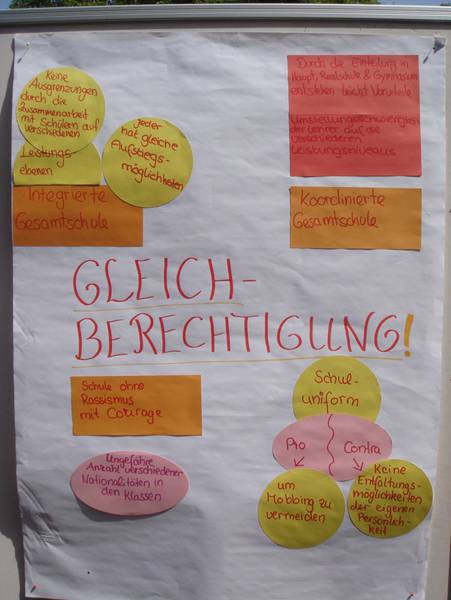 Keine
Ausgrenzungen
durch die
Zusammenarbeit
mit Schülern auf
verschiedenen
Leistungs-
ebenen
Jeder
hat gleiche
Aufstiegs-
möglichkeiten
Integrierte
Gesamtschule
Durch die Einteilung in
Haupt, Realschule & Gymnasium
entstehen leicht Vorurteile
Umstellungsschwierigkeiten
der Lehrer auf die
verschiedenen
Leistungsniveaus
Koordinierte
Gesamtschule
GLEICH-
BERECHTIGUNG!
Schule ohne
Rassismus
mit Courage
Ungefähre
Anzahl verschiedener
Nationalitäten in
den Klassen
Schul-
uniform
Pro
Contra
um
Mobbing zu
vermeiden
Keine
Entfaltungs-
möglichkeiten
der eigenen
Persönlich-
keit